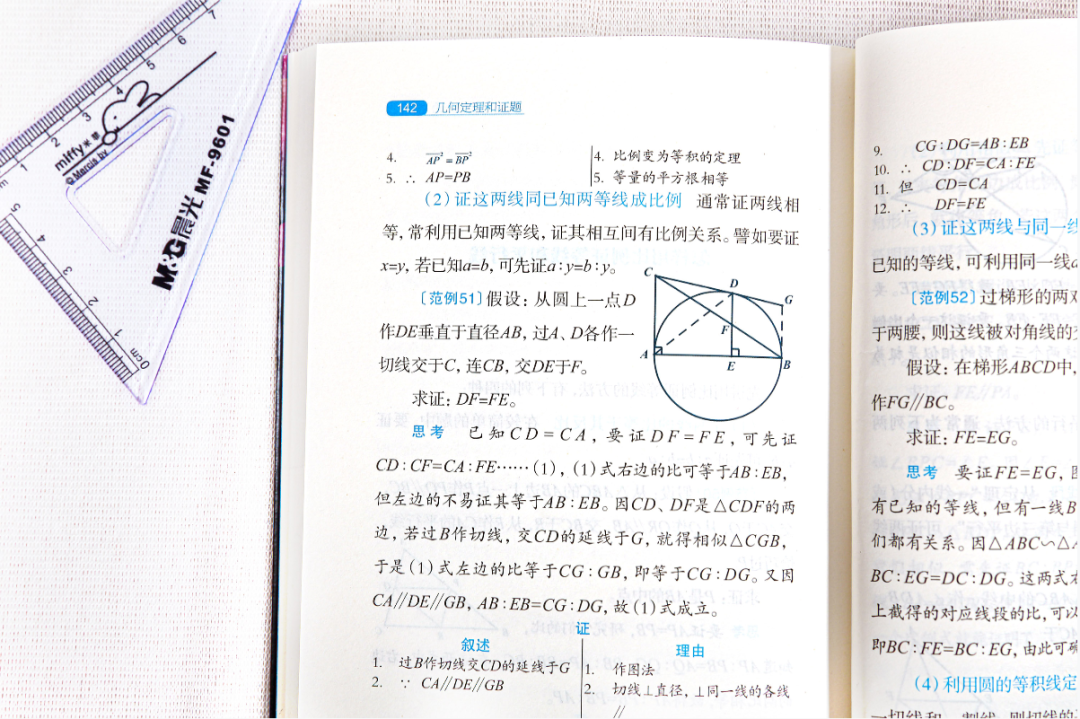 7
6
5
4
3
2
1
0cm
5
4
3
2
1
miffy米菲
© Mercis bv
M&G晨光 MF-9601
142 几何定理和证题
4. AP²=BP²
4. 比例变为等积的定理
5. ∴ AP=PB
5. 等量的平方根相等
(2)证这两线同已知两等线成比例 通常证两线相
等,常利用已知两等线,证其相互间有比例关系。譬如要证
x=y,若已知a=b,可先证a:y=b:y。
〔范例51〕假设:从圆上一点D
作DE垂直于直径AB,过A、D各作一
切线交于C,连CB,交DE于F。
求证:DF=FE。
C
D
G
F
A
E
B
思考 已知CD=CA,要证DF=FE,可先证
CD:CF=CA:FE……(1),(1)式右边的比可等于AB:EB,
但左边的不易证其等于AB:EB。因CD、DF是△CDF的两
边,若过B作切线,交CD的延长于G,就得相似△CGB,
于是(1)式左边的比等于CG:GB,即等于CG:DG。又因
CA//DE//GB,AB:EB=CG:DG,故(1)式成立。
证
叙述
理由
1. 过B作切线交CD的延长于G
1. 作图法
2. ∵ CA//DE//GB
2. 切线⊥直径,⊥同一线的各线
//
9. CG:DG=AB:EB
10. ∴ CD:DF=CA:FE
11. 但 CD=CA
12. ∴ DF=FE
(3)证这两线与同一线
已知的等线,可利用同一线
〔范例52〕过梯形的两对
于两腰,则这线被对角线的
假设:在梯形ABCD中,
作FG//BC。
求证:FE=EG。
思考 要证FE=EG,
有已知的等线,但有一线B
们都有关系。因△ABC∽△A
BC:EG=DC:DG。这两式
上截得的对应线段的比,可以
即BC:FE=BC:EG,由此可
(4)利用圆的等积线定